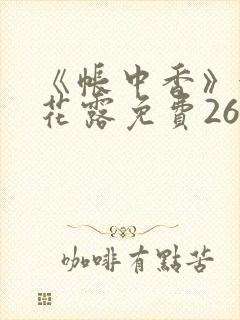 《帳中香》
花露免費26
咖啡有點苦